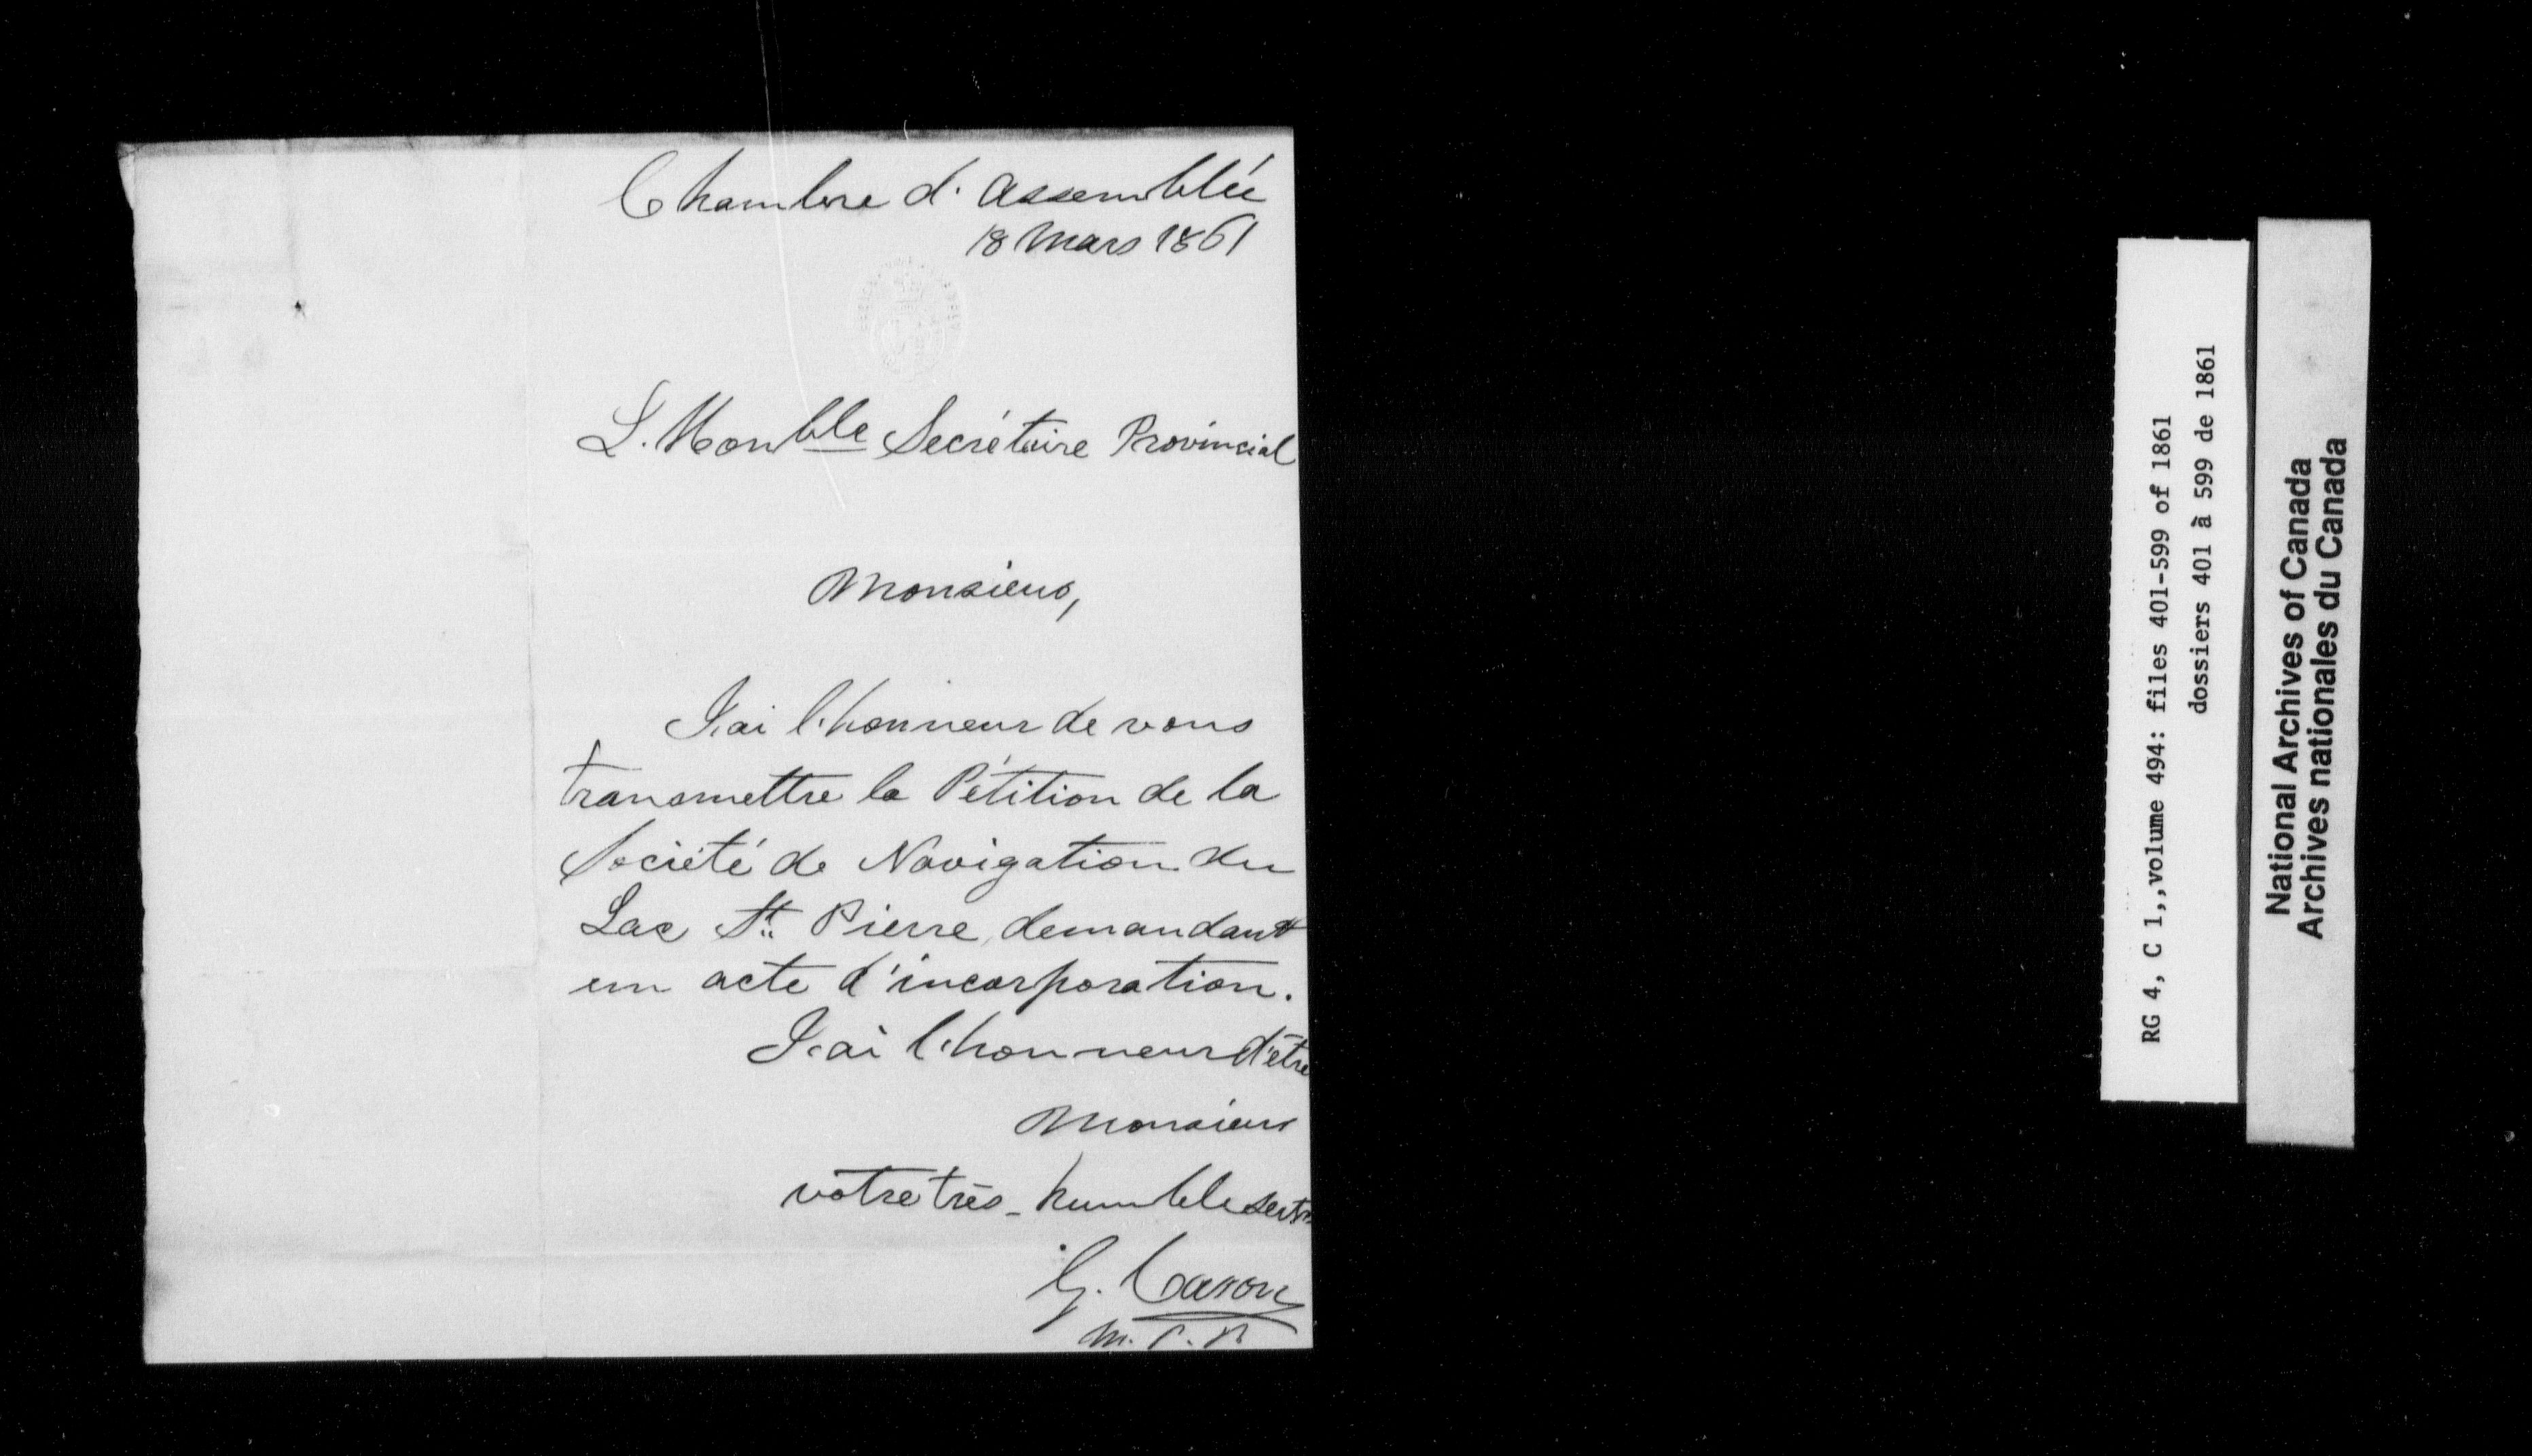 Chambre d'assemblée
18 Mars 1861
L'Honble Secrétaire Provincial
Monsieur,
J'ai l'honneur de vous
transmettre la Pétition de la
Société de Navigation du
Lac St. Pierre, demandant
un acte d'incorporation.
J'ai l'honneur d'être
Monsieur
votre très-humble
G. Caron
M.P.P.
RG 4, C 1,,volume 494: files 401-599 of 1861
dossiers 401 à 599 de 1861
National Archives of Canada
Archives nationales du Canada